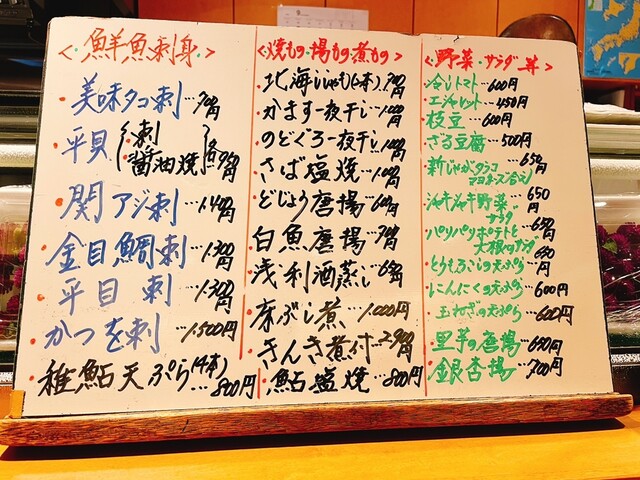 <・鮮魚刺身>
・美味タコ刺…700円
・平貝(刺 醤油焼)各950円
・関アジ刺…1,400円
・金目鯛刺…1,300円
・平目刺…1,300円
・かつを刺…1,500円
・稚鮎天ぷら(4本)…800円
<・焼もの・揚もの・煮もの>
・北海ししゃも
・かます一夜干し…1,000円
・のどぐろ一夜干し
・さば塩焼…1,000円
・どじょう唐揚…600円
・白魚唐揚…700円
・浅利酒蒸し…650円
・床ぶし煮…1,000円
・きんき煮付…2,900円
・鮎塩焼…800円
<・野菜・サラダ・丼>
・冷しトマト…600円
・エシャレット…450円
・枝豆…600円
・ざる豆腐…500円
・新じゃがタラコマヨネーズ合え…650円
・シャキシャキ野菜サラダ…650円
・パリパリポテトと大根のサラダ…650円
・とうもろこしの天ぷら…650円
・にんにくの天ぷら…600円
・玉ねぎの天ぷら…600円
・里芋の唐揚…650円
・銀杏揚…700円